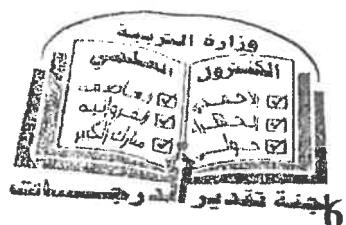 وزارة التربية
الكنترول
☑ الأحمدي
☑ الجهراء
☑ حولي
☑ العاصمة
☑ الفروانية
☑ مبارك الكبير
لجنة تقدير درجات
6